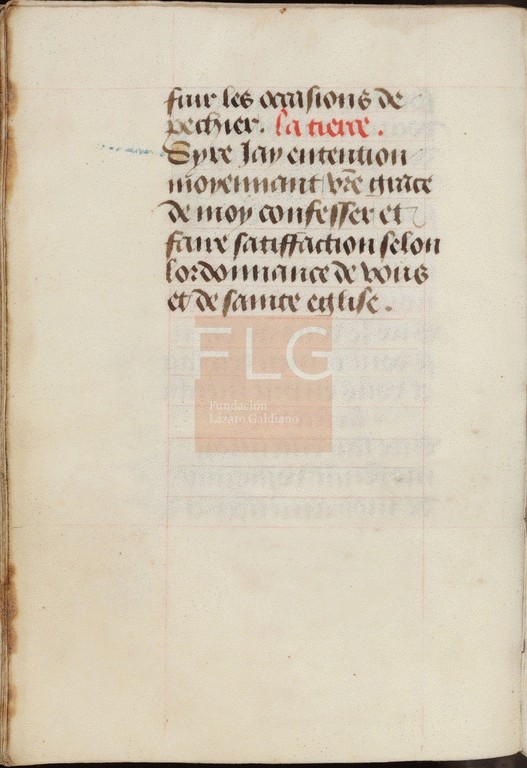 fuir les occasions de
pechier. La tierce.
Syre Jay entention
moyennant vre grace
de moy confesser et
faire satiffaction selon
lordonnance de vous
et de sainte eglise.
FLG
Fundación
Lázaro Galdiano